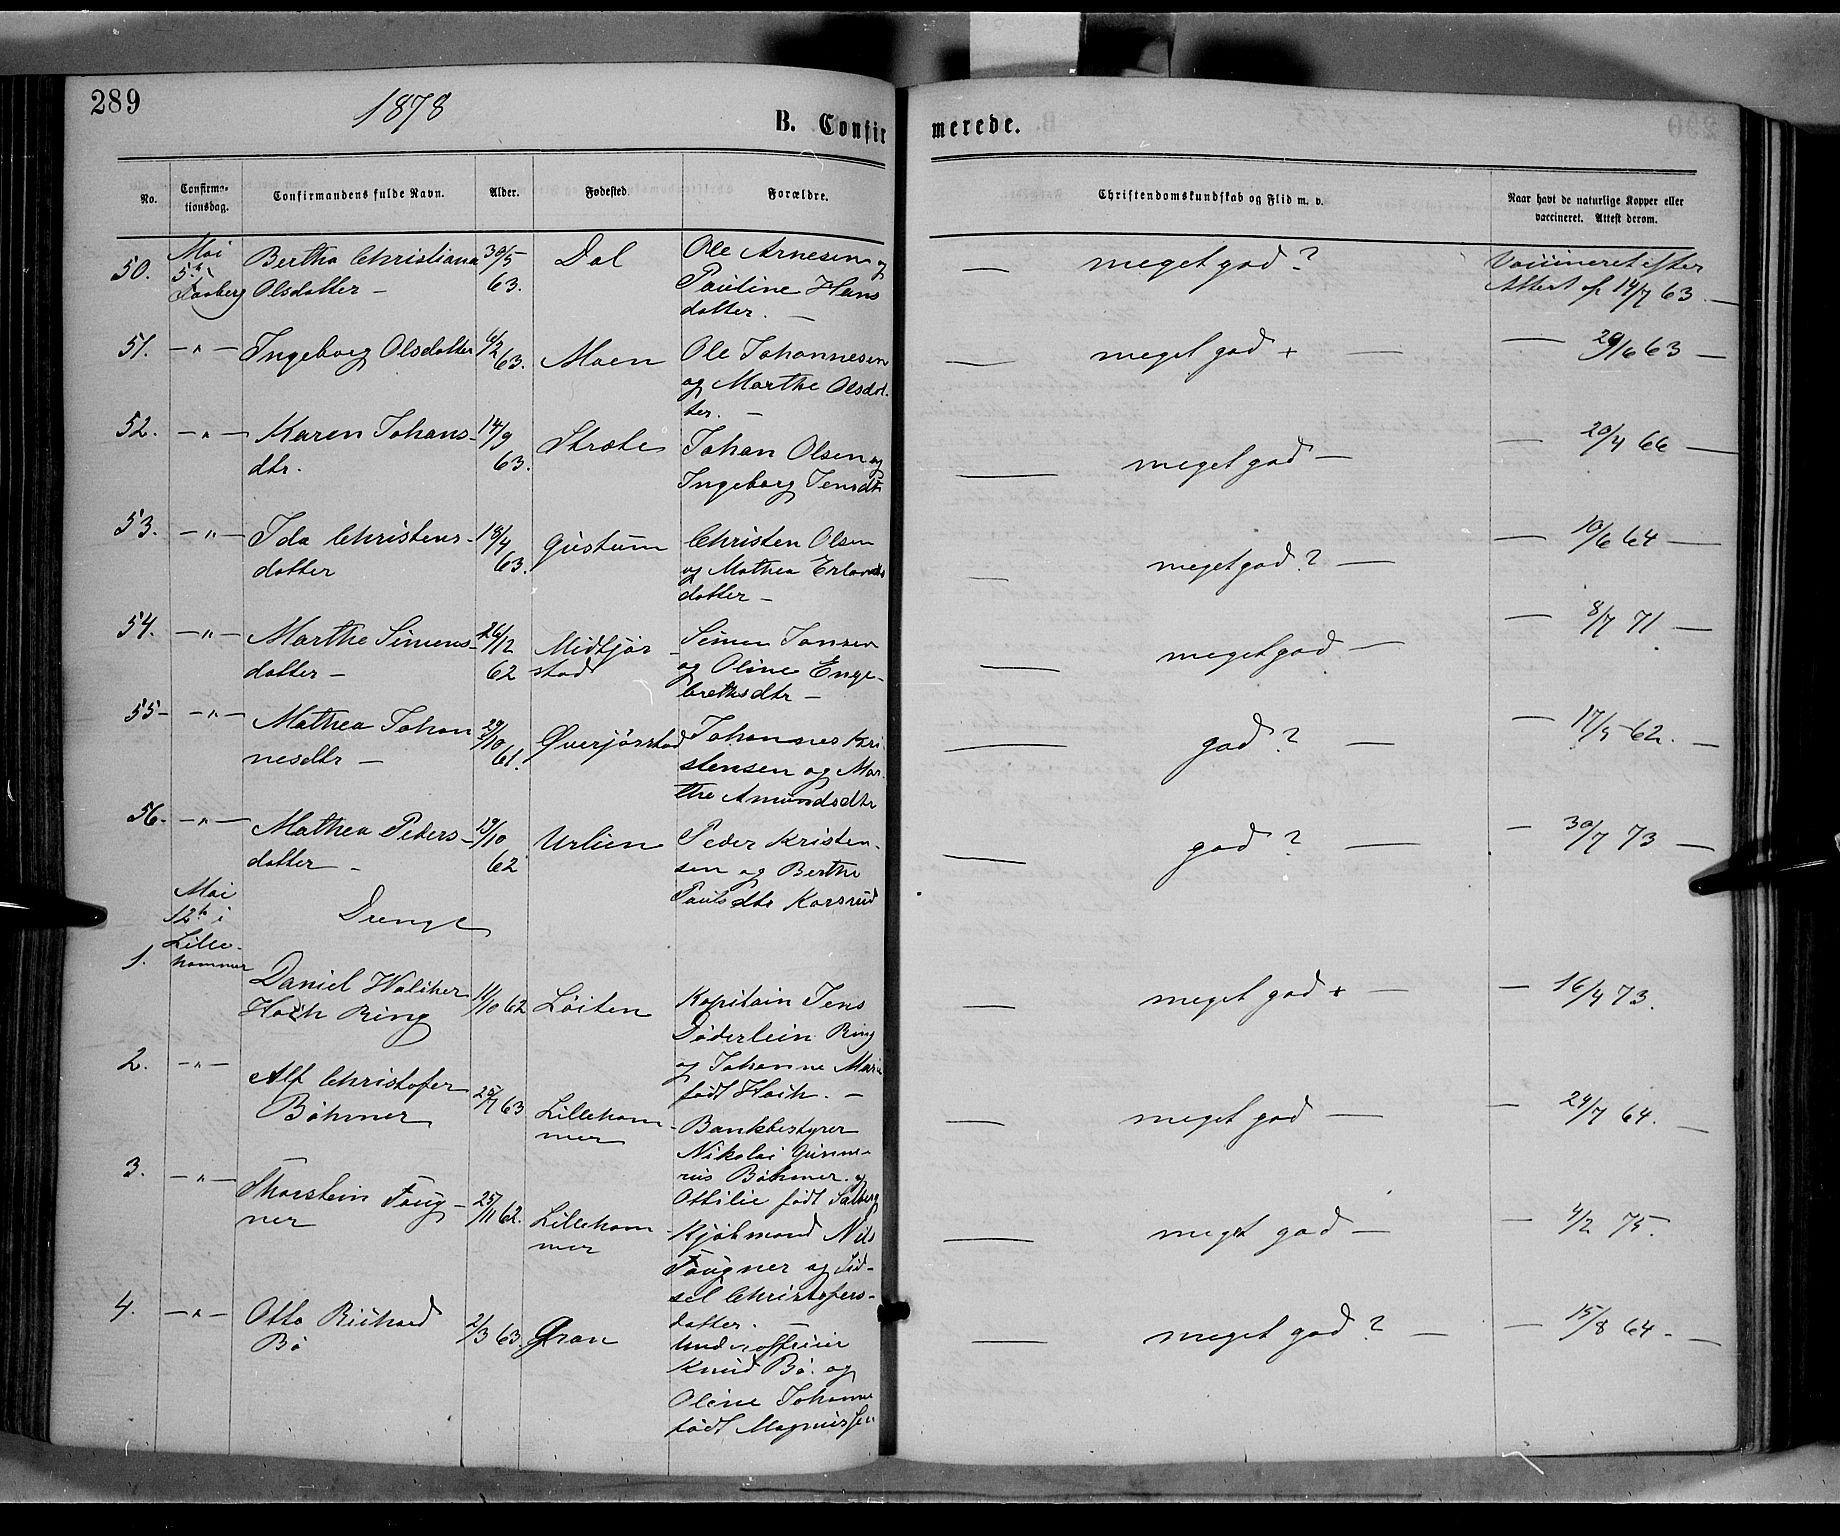 289
1878
B. Confirmerede.
No. Confirmationsdag. Confirmandens fulde Navn. Alder. Fødested. Forældre. Christendomskundskab og Flid m. v. Naar havt de naturlige Kopper eller vaccineret. Attest derom.
50. Mai 5te i Faaberg Bertha Christiana Olsdatter – 30/5 63. Dal Ole Arnesen og Pauline Hansdatter. – — meget god? Vaccineret efter Attest af 14/7 63 —
51. –"– Ingeborg Olsdatter 6/2 63. Moen Ole Johannesen og Marthe Olsdatter. – — meget god + — — 29/6 63 —
52. –"– Karen Johansdtr. 14/9 63. Stræte Johan Olsen og Ingeborg Jensdtr — meget god — — 20/4 66 —
53. –"– Ida Christensdatter 18/4 63. Gustum Christen Olsen og Mathea Erlandsdatter – — meget god? — — 10/6 64 —
54. –"– Marthe Simensdatter – 26/12 62 Midtjørstad Simen Jansen og Oline Engebrethsdtr – — meget god — — 8/7 71 —
55 –"– Mathea Johannesdtr – 29/10 61. Øverjørstad Johannes Kristensen og Marthe Amundsdtr — god? — — 17/5 62. —
56. –"– Mathea Pedersdatter – 19/10 62 Urlien Peder Kristensen og Berthe Paulsdtr Korsrud — god? — — 30/7 73 —
Mai 12te i Lillehammer
Drenge
1. Daniel Walther Hoch Ring 11/10 62 Løiten Kapitain Jens Døderlein Ring og Johanne Marie født Hoch. – — meget god + — — 16/4 73.
2. –"– Alf Christofer Bøhmer 25/7 63 Lillehammer Bankbestyrer Nikolai Gunnerus Bøhmer og Ottilie født — meget god — — 24/7 64. —
3. –"– Thorstein Fougner 25/11 62. Lillehammer Kjøbmand Nils Fougner og Sidsel Christofersdatter. – — meget god — — 4/2 75.
4. –"– Otto Richard Bø 2/3 63 Gran Underofficier Knud Bø og Oline Johanne født Magnussen — meget god? — — 15/8 64 —